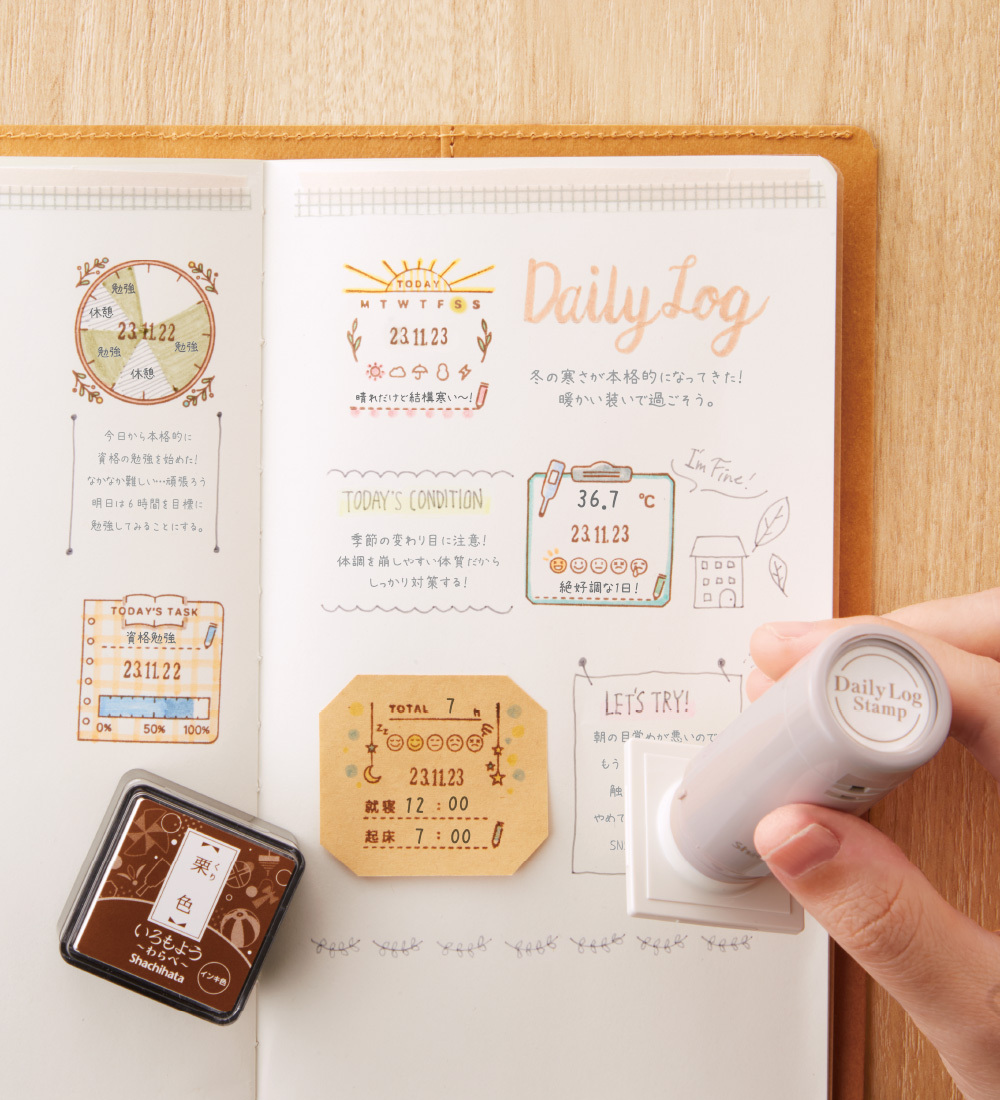 勉強
休憩
23.11.22
勉強
勉強
休憩
今日から本格的に
資格の勉強を始めた!
なかなか難しい…頑張ろう
明日は6時間を目標に
勉強してみることにする。
TODAY'S TASK
資格勉強
23.11.22
0% 50% 100%
栗色
くり
いろもよう
～わらべ～
Shachihata
インキ色
TODAY
M T W T F S S
23.11.23
晴れだけど結構寒い～!
Daily Log
冬の寒さが本格的になってきた!
暖かい装いで過ごそう。
TODAY'S CONDITION
季節の変わり目に注意!
体調を崩しやすい体質だから
しっかり対策する!
36.7 ℃
23.11.23
絶好調な1日!
I'm Fine!
TOTAL 7 h
zz
23.11.23
就寝 12 : 00
起床 7 : 00
LET'S TRY!
朝の目覚めが悪いので
もう
触
やめて
SN
Daily Log
Stamp